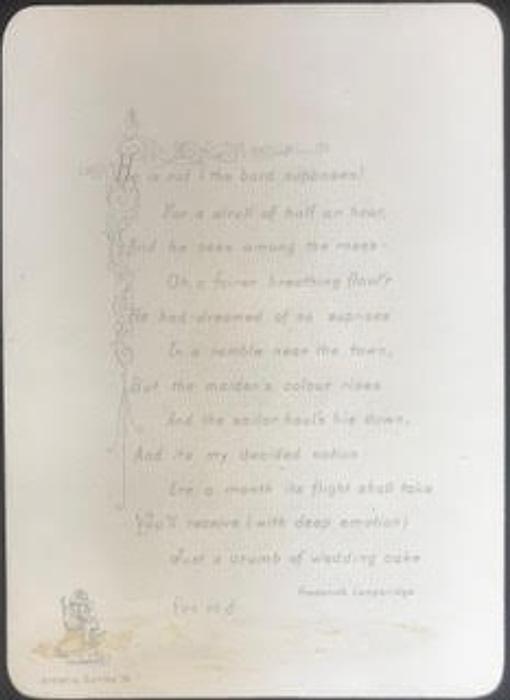 He is out (the bard supposes)
For a stroll of half an hour,
And he sees among the roses
Oh a fairer breathing flow'r
He had dreamed of no
In a ramble near the town,
But the maiden's colour rises
And the sailor haul's his down,
And its my decided notion
Ere a month its flight shall take
You'll receive (with deep emotion)
Just a crumb of wedding cake
Frederick Langbridge